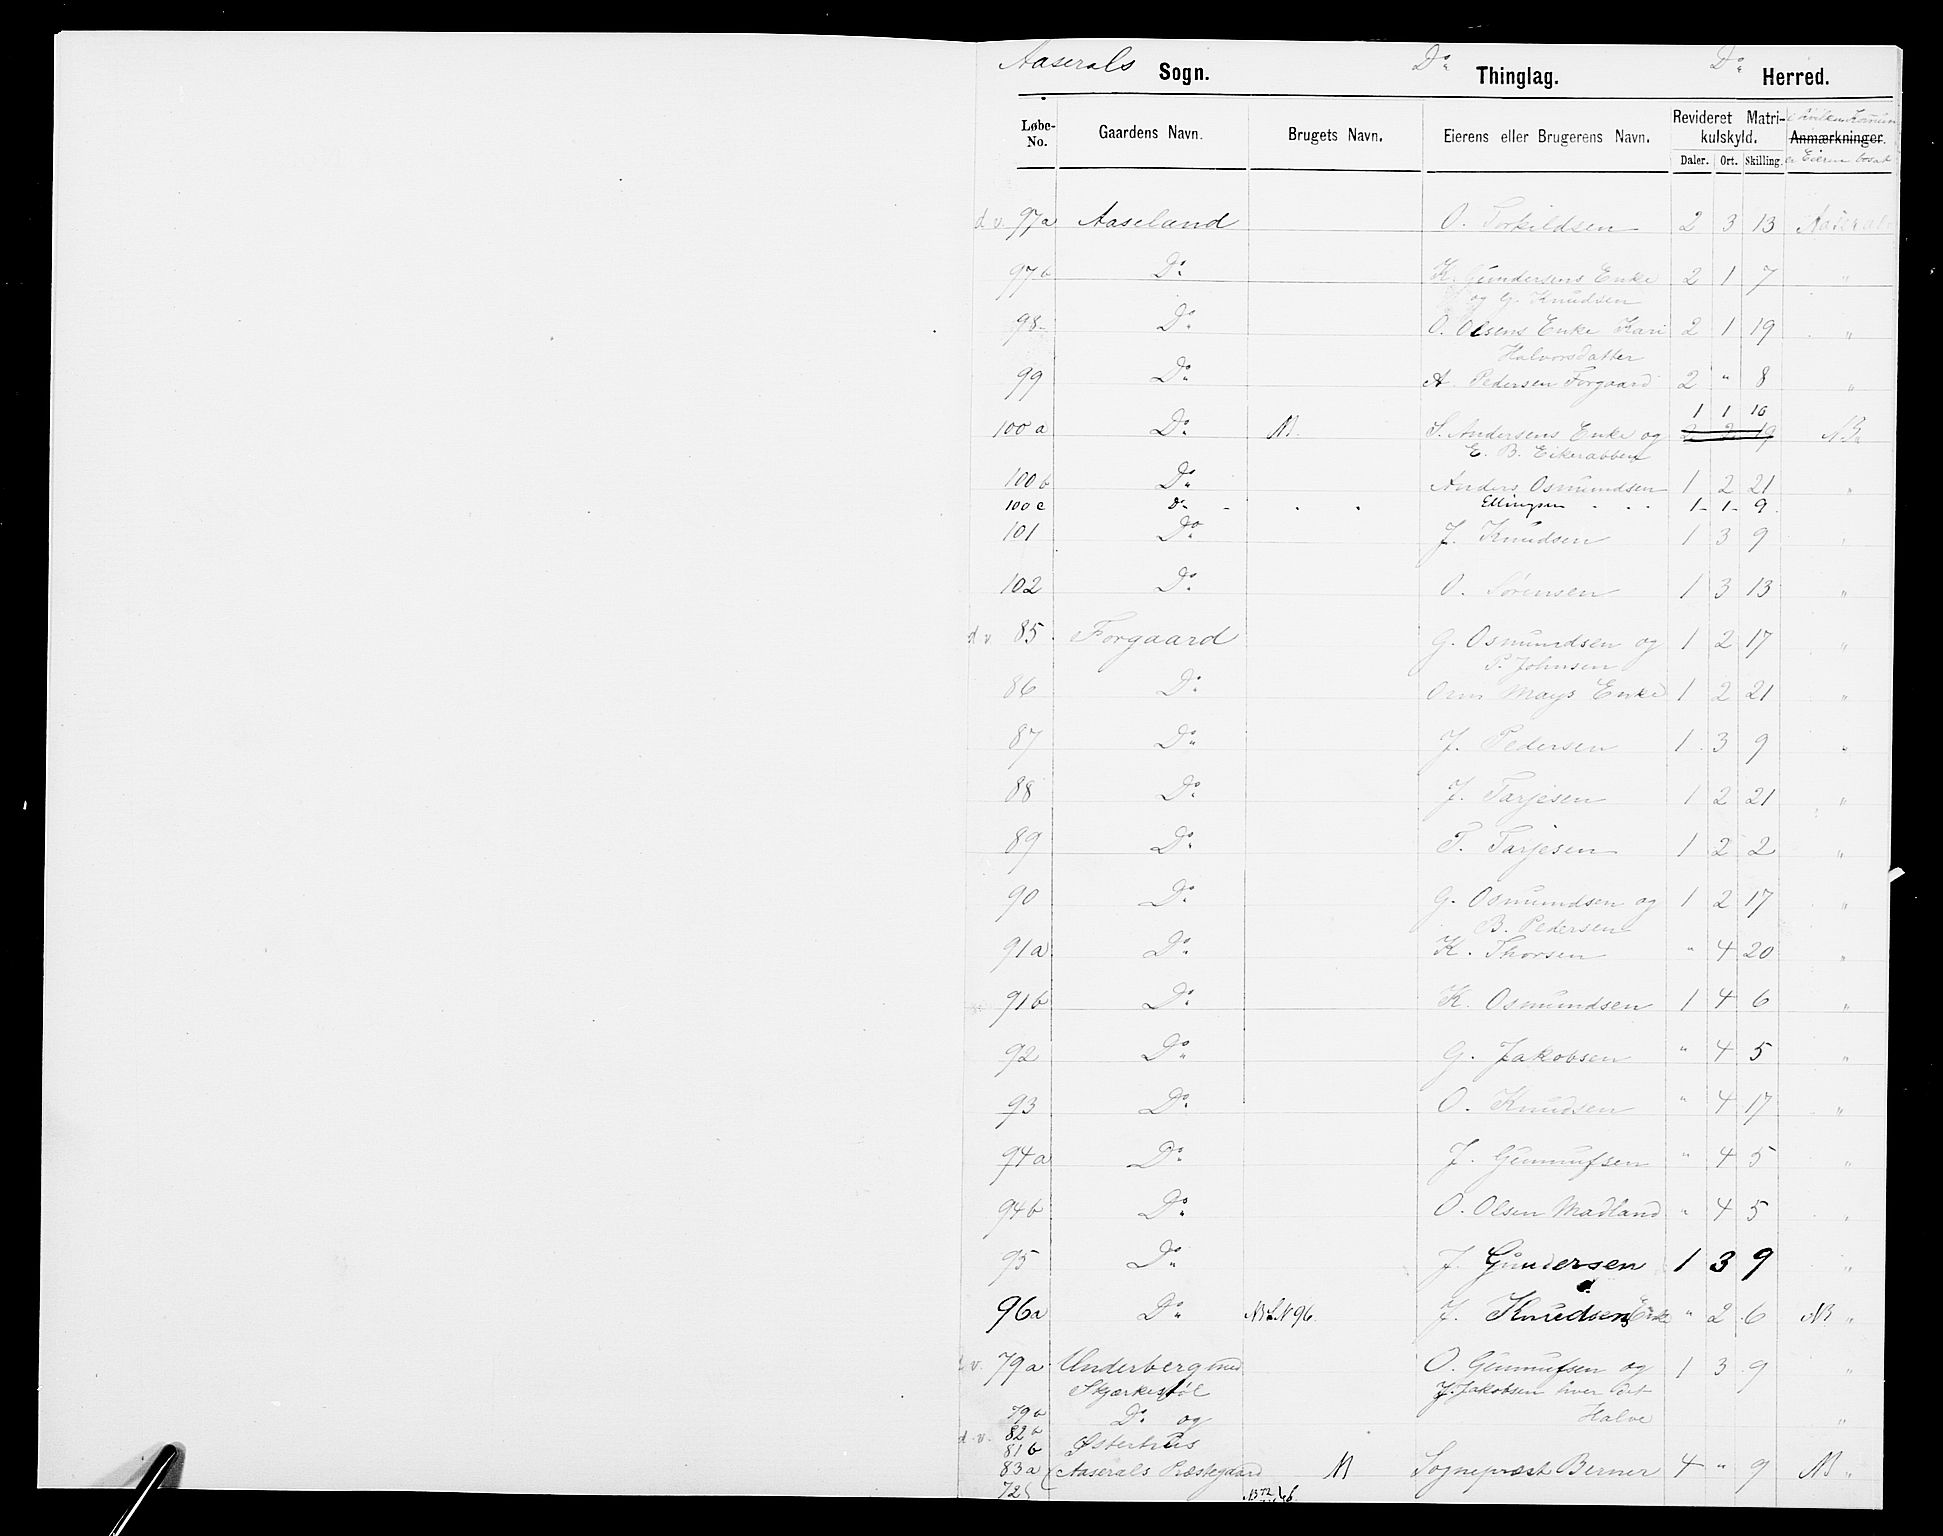 Aaserals Sogn. Do Thinglag. Do Herred.
Løbe-No. Gaardens Navn. Brugets Navn. Eierens eller Brugerens Navn. Revideret Matrikulskyld. i hvilken Komun
Daler. Ort. Skilling. Anmærkninger. er Eieren bosat
d. v. 97a Aaseland O. Torkildsen 2 3 13 Aaseral
97b Do K. Gundersens Enke 2 1 7 "
og G. Knudsen
98 Do O. Olsens Enke Kari 2 1 19 "
Halvorsdatter
99 Do A. Pedersen Forgaard 2 " 8 "
1 1 10
100a Do NB. S. Andersens Enke og 2 2 19 NB "
E. B. Eikerabben
100b Do Anders Osmundsen 1 2 21 "
100c Do Ellingsen 1 1 9
101 Do J. Knudsen 1 3 9 "
102 Do O. Sørensen 1 3 13 "
d v 85 Forgaard G. Osmundsen og 1 2 17 "
P. Johnsen
86 Do Orm Mays Enke 1 2 21 "
87 Do J. Pedersen 1 3 9 "
88 Do J. Tarjesen 1 2 21 "
89 Do T. Tarjesen 1 2 2 "
90 Do G. Osmundsen og 1 2 17 "
B. Pedersen
91a Do K. Thorsen " 4 20 "
91b Do K. Osmundsen 1 4 6 "
92 Do G. Jakobsen " 4 5 "
93 Do O. Knudsen " 4 17 "
94a Do J. Gunnufsen " 4 5 "
94b Do O. Olsen Madland " 4 5 "
95 Do J. Gundersen 1 3 9 "
96a Do J. Knudsens Enke " 2 6 NB "
d. v. 79a Underberg med O. Gunnufsen og 1 3 9 "
Skjerkestøl J. Jakobsen hver det
79b Do og Halve "
d. v. 82b
81b Østerhus
83a Aaserals Præstegaard NB Sognepræst Berner 4 " 9 NB "
72